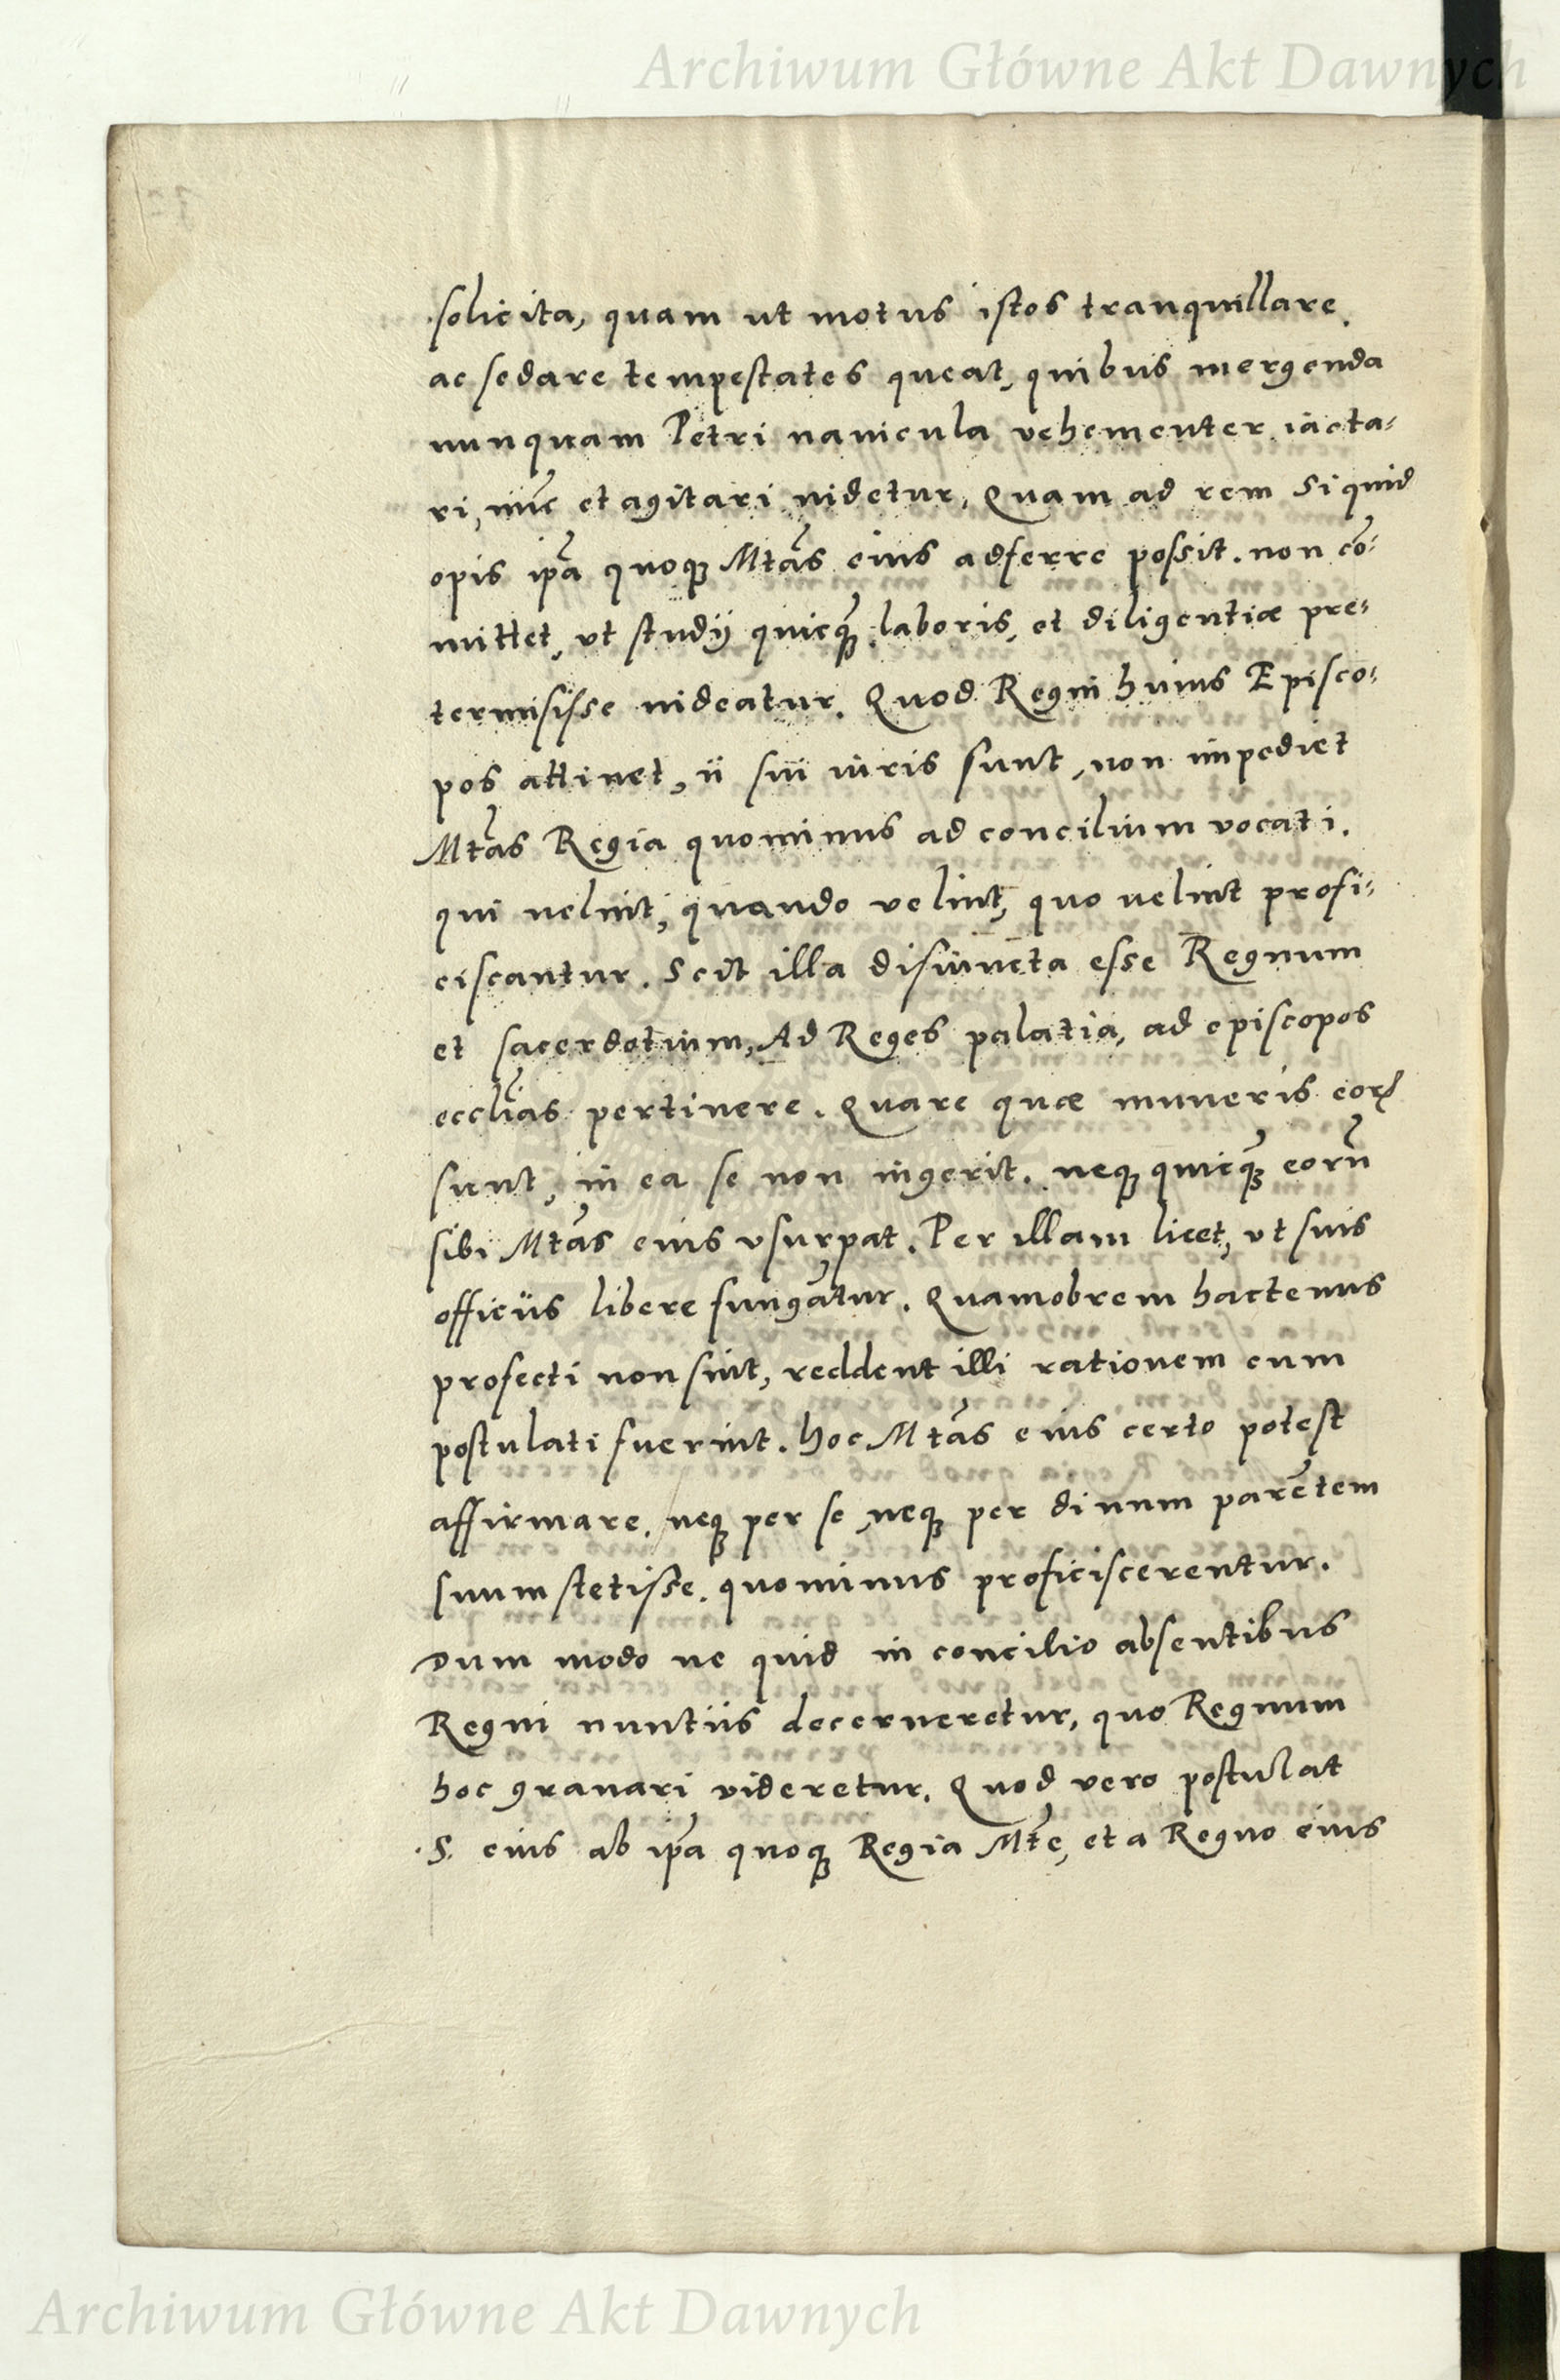 Archiwum Główne Akt Dawnych
solicita, quam ut motus istos tranquillare.
ac sedare tempestates queat, quibus mergenda
nunquam Petri nauicula vehementer iacta-
ri, nūc et agitari uidetur, Quam ad rem si quid
opis ip̃a quoqꝫ Mtãs eius adferre possit. non cõ-
mittet, ut studij quicq̃ꝫ laboris, et diligentiæ pre-
termisisse uideatur. Quod Regni huius Episco-
pos attinet, ii sui iuris sunt, non impediet
Mtãs Regia quominus ad concilium vocati.
qui uelint, quando velint, quo uelint profi-
ciscantur. Scit illa disiuncta esse Regnum
et sacerdotium, Ad Reges palatia, ad episcopos
eccl̃ias pertinere. Quare quæ muneris eorꝝ
sunt, in ea se non ingerit. neqꝫ quicq̃ꝫ eorũ
sibi Mtãs eius vsurpat. Per illam licet, ut suis
officiis libere fungãtur. Quamobrem hactenus
profecti non sint, reddent illi rationem cum
postulati fuerint. hoc Mtãs eius certo potest
affirmare. neqꝫ per se, neqꝫ per diuum parẽtem
suum stetisse. quominus proficiscerentur.
Dum modo ne quid in concilio absentibus
Regni nuntiis decerneretur, quo Regnum
hoc grauari videretur. Quod vero postulat
.S. eius ab ip̃a quoqꝫ Regia Mt̃e, et a Regno eius
Archiwum Główne Akt Dawnych